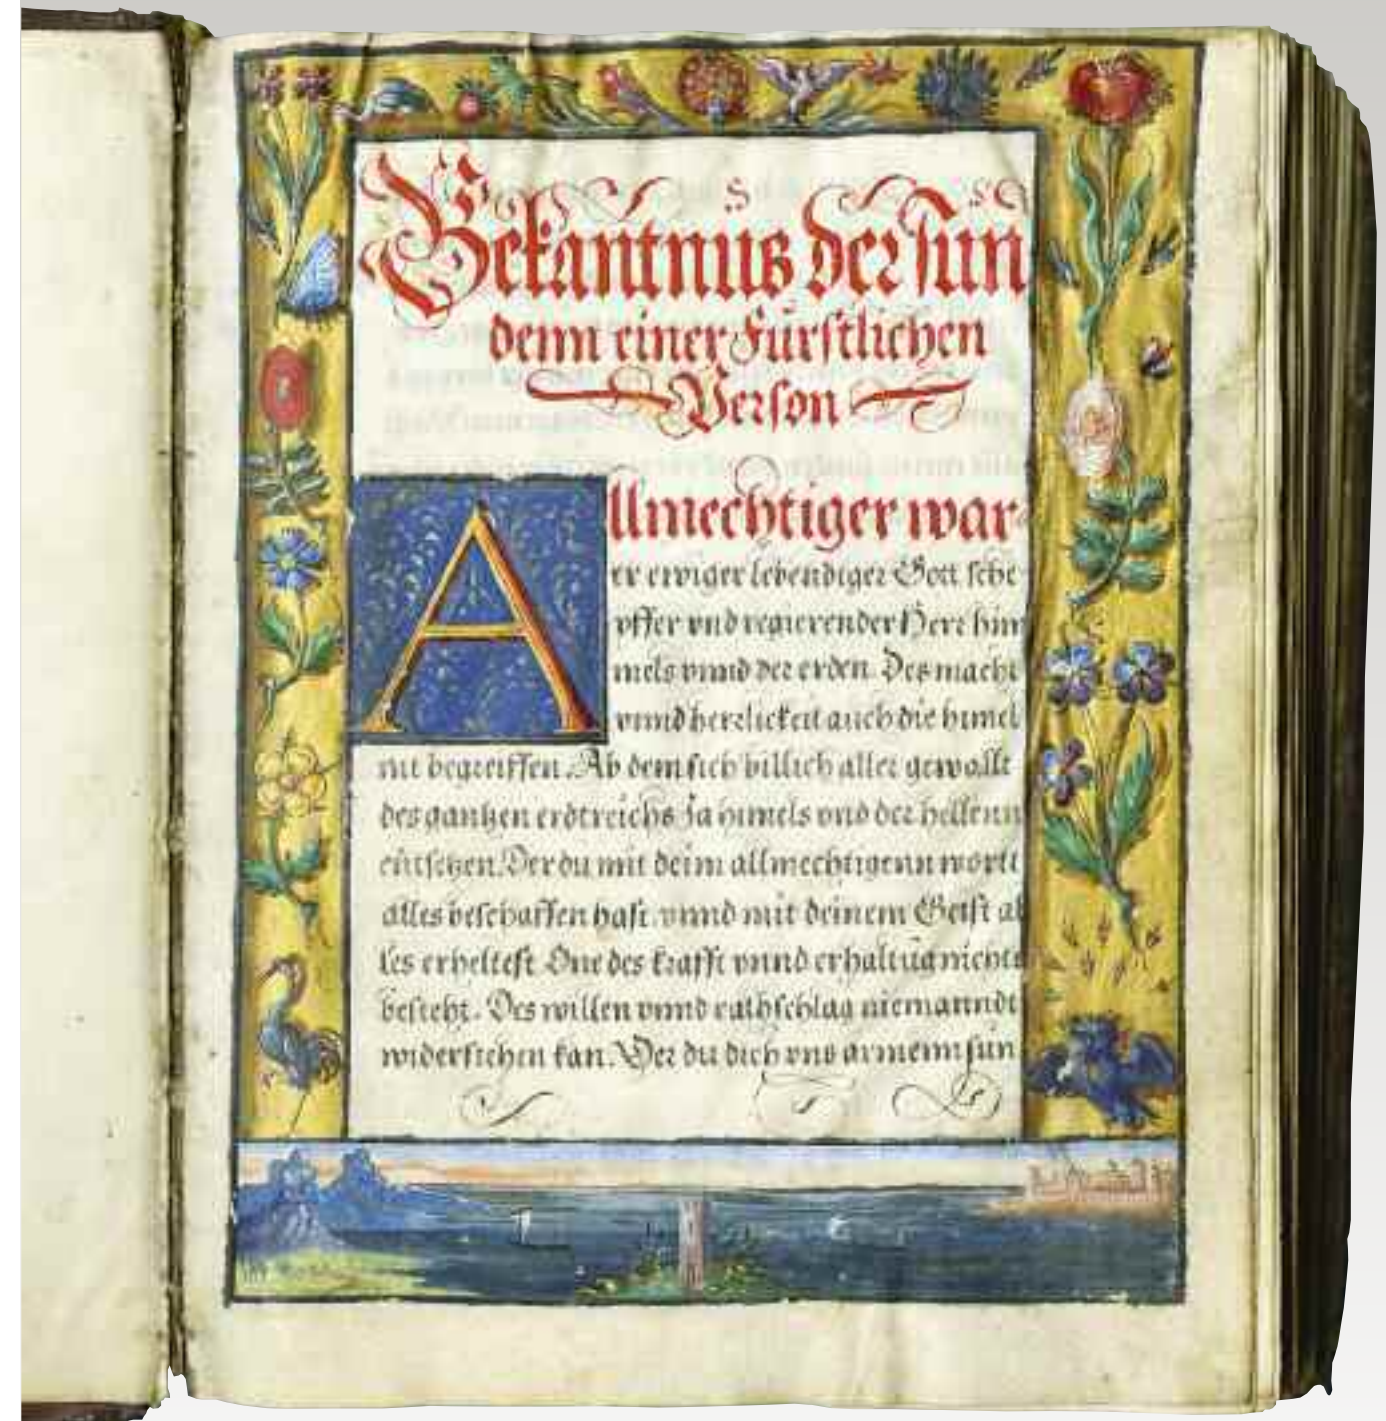 Bekantnus der sun
denn einer Fürstlichen
Person
Allmechtiger war-
er ewiger lebendiger Gott sche-
pffer vnd regierender Herr him
mels vnnd der erden. Des macht
vnnd herrlickeit auch die himel
nit begreiffen. Ab dem sich billich aller gewallt
des gantzen erdtreichs Ja himels vnd der hellenn
entsetzen. Der du mit deim allmechtigenn wortt
alles beschaffen hast. vnnd mit deinem Geist al
les erheltest One des krafft vnnd erhaltūg nichts
besteht. Des willen vnnd rathschlag niemanndt
widerstehen kan. Der du dich vns armenn sün